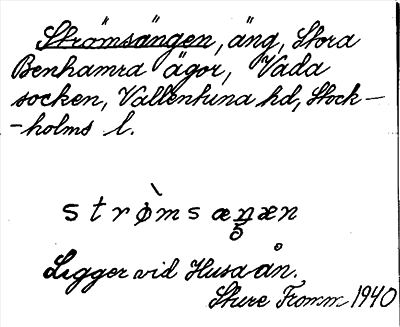 Strömsängen, äng, Stora
Benhamra ägor, Vada
socken, Vallentuna hd, Stock-
-holms l.
strø̀msæŋæn
5
Ligger vid Husaån.
Sture Fromm 1940